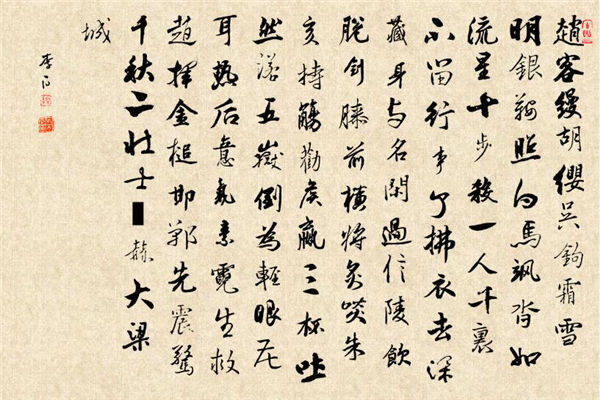 趙客縵胡纓吳鉤霜雪
明銀鞍照白馬颯沓如
流星十步殺一人千裏
不留行事了拂衣去深
藏身与名閑過信陵飲
脱劍膝前横將炙啖朱
亥持觴勸侯嬴三杯吐
然諾五嶽倒為輕眼花
耳熱后意氣素霓生救
趙揮金槌邯鄲先震驚
千秋二壯士■赫大梁
城
李白